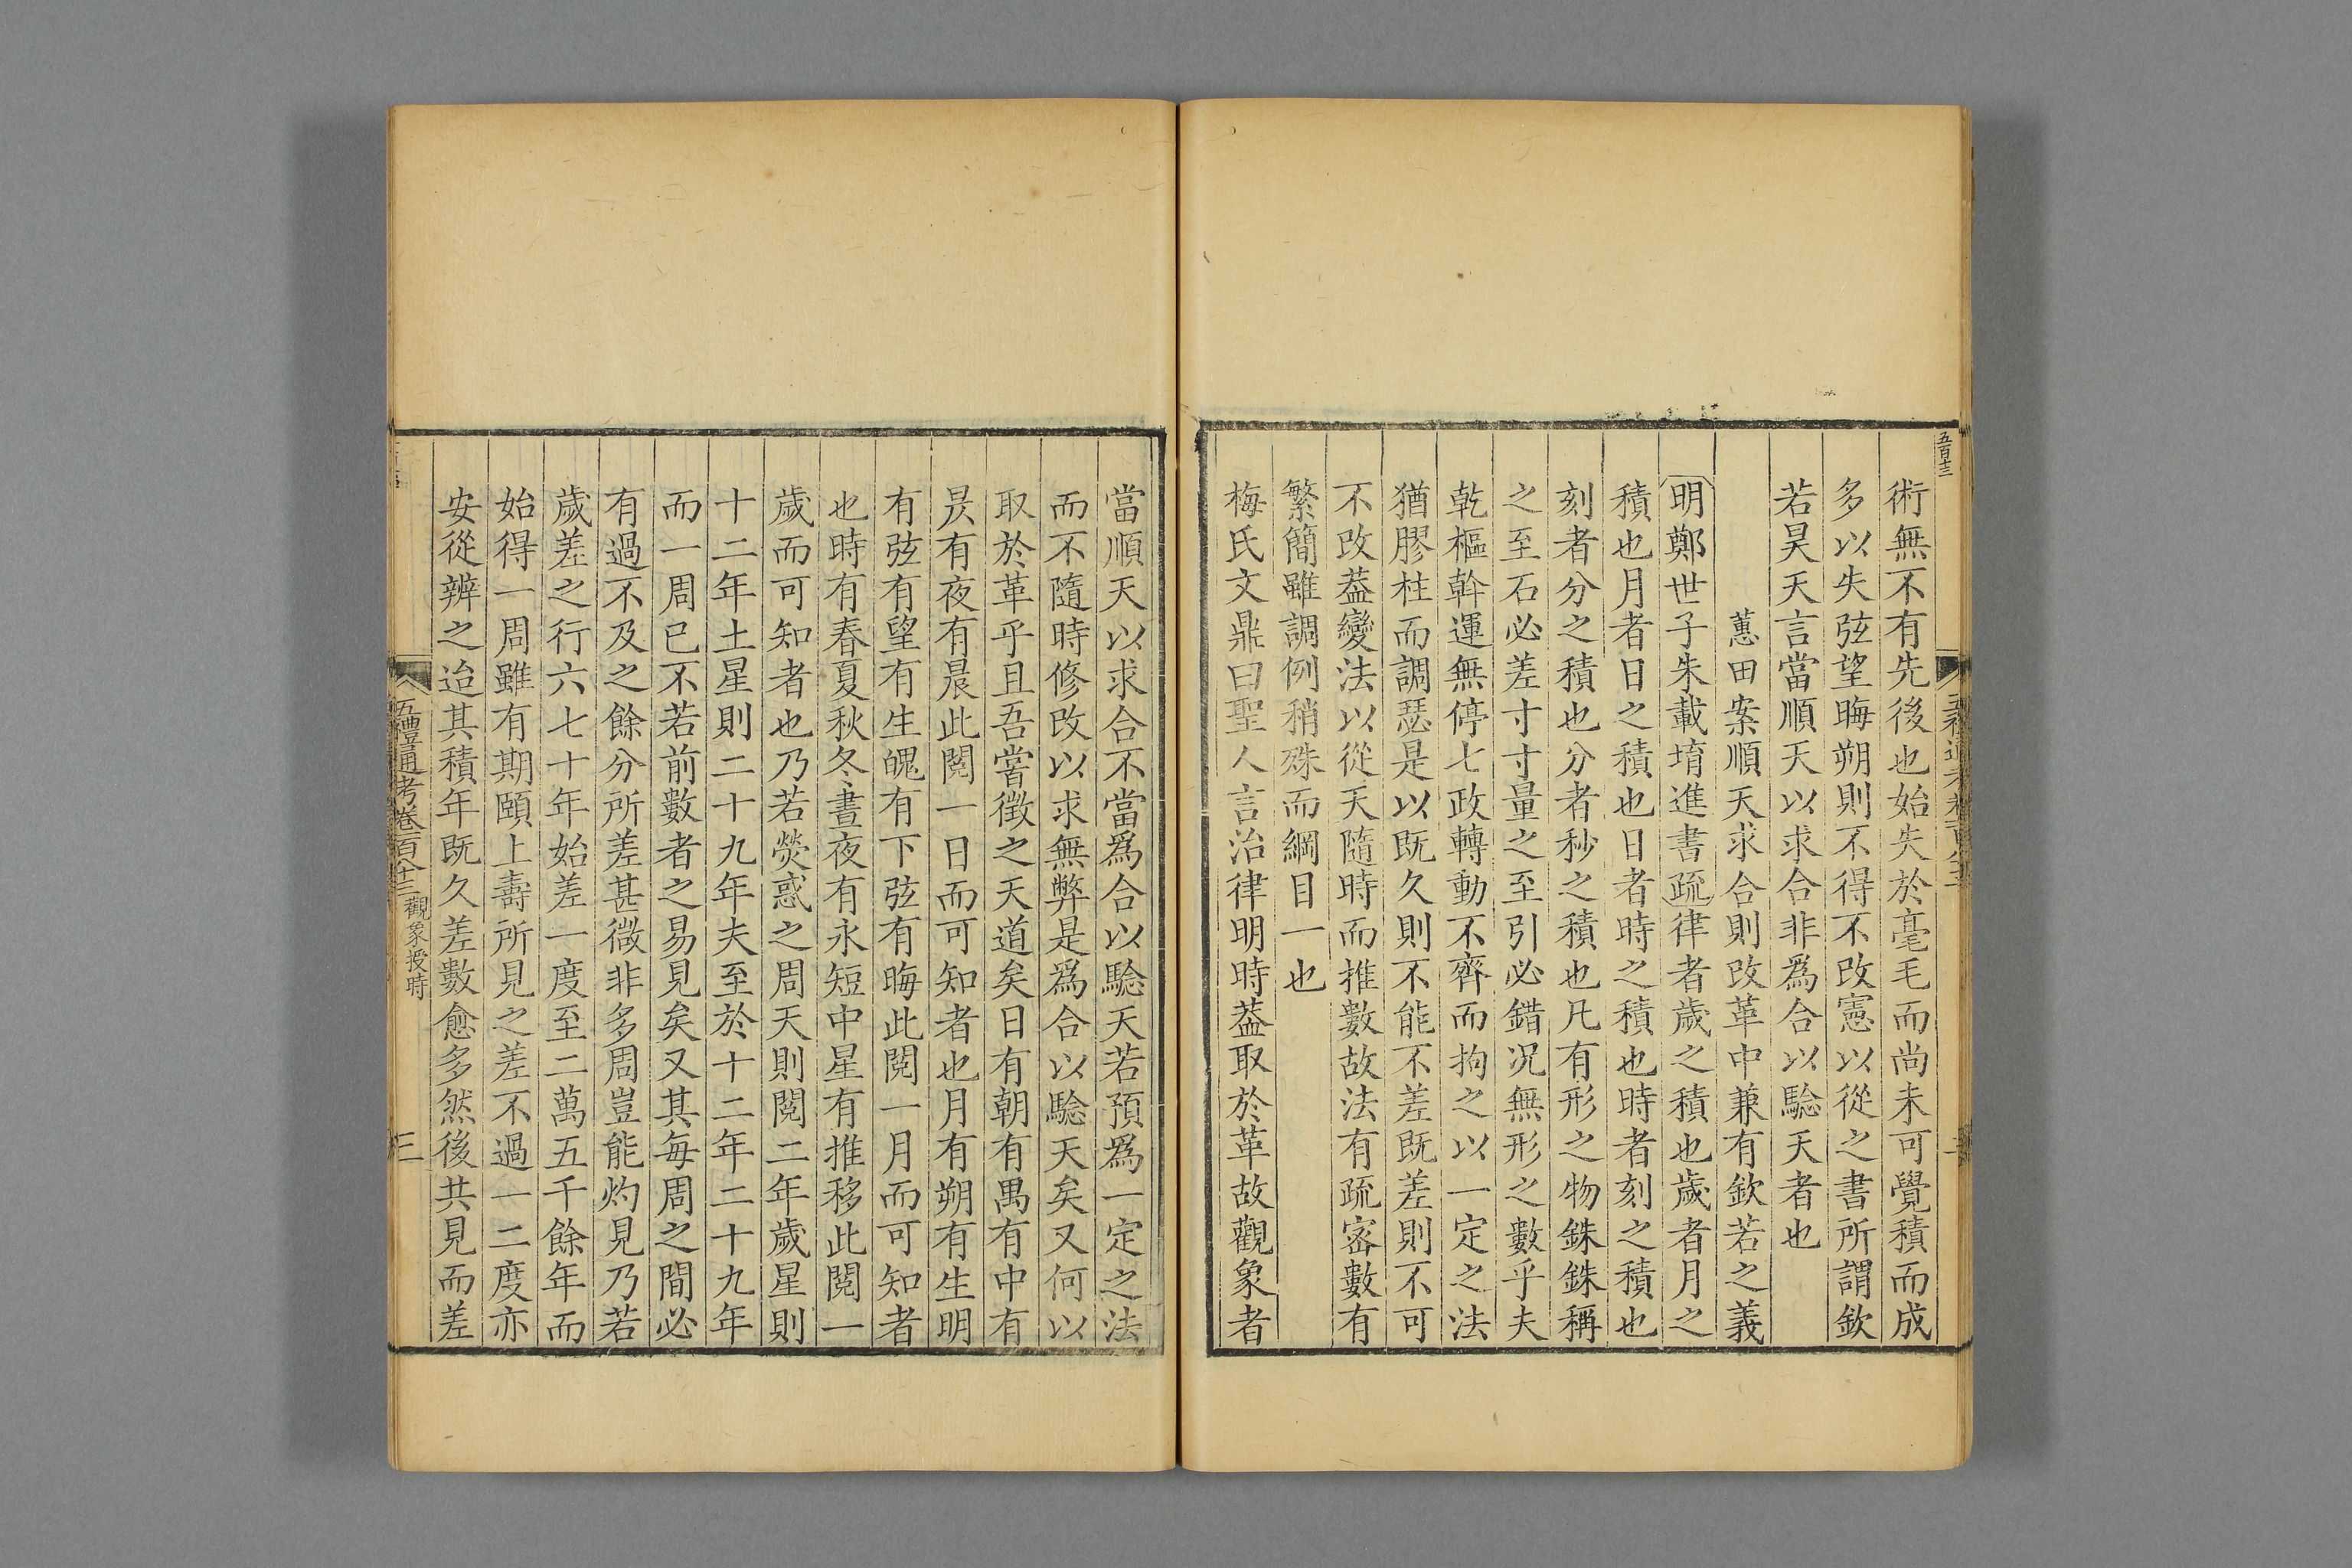 五百十三
術無不有先後也始失於毫毛而尚未可覺積而成
多以失弦望晦朔則不得不改憲以從之書所謂欽
若昊天言當順天以求合非爲合以驗天者也
蕙田案順天求合則改革中兼有欽若之義
明鄭世子朱載堉進書疏律者歲之積也歲者月之
積也月者日之積也日者時之積也時者刻之積也
刻者分之積也分者秒之積也凡有形之物銖銖稱
之至石必差寸寸量之至引必錯况無形之數乎夫
乾樞斡運無停七政轉動不齊而拘之以一定之法
猶膠柱而調瑟是以既久則不能不差既差則不可
不改葢變法以從天隨時而推數故法有疏宻數有
繁簡雖調例稍殊而綱目一也
梅氏文鼎曰聖人言治律明時葢取於革故觀象者
當順天以求合不當爲合以驗天若預爲一定之法
而不隨時修改以求無弊是爲合以驗天矣又何以
取於革乎且吾嘗徵之天道矣日有朝有禺有中有
昃有夜有晨此閱一日而可知者也月有朔有生明
有弦有望有生魄有下弦有晦此閱一月而可知者
也時有春夏秋冬晝夜有永短中星有推移此閱一
歲而可知者也乃若熒惑之周天則閱二年歲星則
十二年土星則二十九年夫至於十二年二十九年
而一周已不若前數者之易見矣又其每周之間必
有過不及之餘分所差甚微非多周豈能灼見乃若
歲差之行六七十年始差一度至二萬五千餘年而
始得一周雖有期頤上壽所見之差不過一二度亦
安從辨之迨其積年既久差數愈多然後共見而差
五禮通考卷一百八十三 觀象授時
三